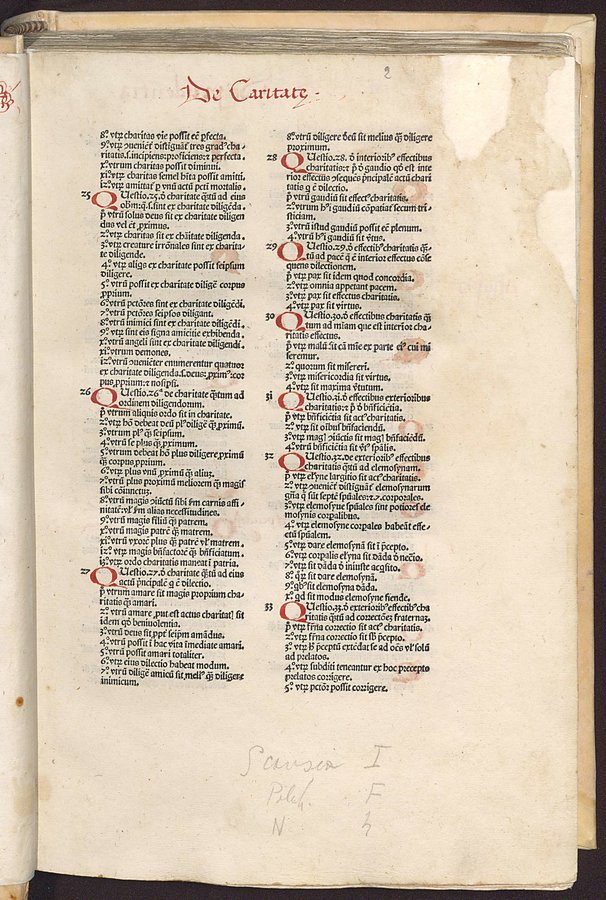 2
De Caritate.
8º. vtrũ charitas vie possit eẽ ꝑfecta.
9º. vtrũ ↄueniẽt᷑ distiguãt᷑ tres grad᷒ cha-
ritatis.s.incipiens:proficiens:⁊ perfecta.
xº. vtrum charitas possit diminui.
xiº. vtrũ charitas semel hĩta possit amitti.
xiiº. vtrũ amittat᷑ ꝑ vnũ actũ pctĩ mortalis.
25 QUestio.25.õ charitate q̃tũ ad eius
obm̃:q̃.s.sunt ex charitate diligẽda.
p̃ vtrũ solus deus sit ex charitate diligen
dus vel et ꝓximus.
2º. vtrũ charitas sit ex chãitate diligenda.
3º. vtrũ creature irrõnales sint ex charita-
te diligende.
4º. vtrũ aliqs ex charitate possit seipsum
diligere.
5º. vtrũ possit ex charitate diligẽ corpus
ꝓprium.
6º. vtrũ pctõres sint ex charitate diligẽdi.
7º. vtrũ pctõres seipsos diligant.
8º. vtrũ inimici sint ex charitate diligẽdi.
9º. vtrũ sint eis signa amicitie exhibenda.
xº. vtrũ angeli sint ex charitate diligendi.
xiº. vtrum demones.
xiiº. vtrũ ↄueniẽter enumerentur quatuor
ex charitate diligenda.s.deus:ꝓxim᷒:cor
pus ꝓprium:⁊ nosipsi.
26 QUestio.26ª de charitate q̃tum ad
ordinem diligendorum.
p̃ vtrum aliquis ordo sit in charitate.
2º. vtrũ hõ debeat deũ pl᷒ diligẽ q̃ ꝓximũ.
3º. vtrum pl᷒ q̃ seipsum.
4º. vtrũ se plus q̃ ꝓximum.
5º. vtrum debeat hõ plus diligere ꝓximũ
q̃ corpus ꝓprium.
6º. vtrũ plus vnũ ꝓximũ q̃ aliuʒ.
7º. vtrũ plus proximũ meliorem q̃ magis
sibi cõiunctuʒ.
8º. vtrũ magis ↄiũctũ sibi ẽm carnis affi-
nitatẽ:vl᷑ ẽm alias necessitudines.
9º. vtrũ magis filiũ q̃ patrem.
xº. vtrũ magis patrẽ q̃ matrem.
xiº. vtrũ vxorẽ plus q̃ patrẽ vl᷑ matrem.
xiiº. vtrũ magis bñfactorẽ q̃ bñficiatum.
xiiiº. vtrũ ordo charitatis maneat ĩ patria.
27 QUestio.27.õ charitate q̃tũ ad eius
actũ pñcipalẽ q̃ ẽ dilectio.
p̃ vtrum amare sit magis proprium cha-
ritatis q̃ amari.
2º. vtrũ amare ꝓut est actus charitat᷑ sit
idem qõ beniuolentia.
3º. vtrũ deus sit ꝓpt᷑ seipm amãdus.
4º. vtrũ possit ĩ hac vita ĩmediate amari.
5º. vtrũ possit amari totaliter.
6º. vtrũ eius dilectio habeat modum.
7º. vtrũ diligẽ amicũ sit meli᷒ q̃ diligere
inimicum.
8º. vtrũ diligere deũ sit melius q̃ diligere
proximum.
28 QUestio.28. õ interiorib᷒ effectibus
charitatis:⁊ p̃ õ gaudio qõ est inte
rior effectus ↄseqũẽs pñcipalẽ actũ chari
tatis q̃ ẽ dilectio.
p̃ vtrũ gaudiũ sit effect᷒ charitatis.
2º. vtrum h᷒i gaudiũ cõpatiat᷑ secum tri-
sticiam.
3º. vtrũ istud gaudiũ possit eẽ plenum.
4º. vtrũ h᷒i gaudiũ sit v̓tus.
29 QUestio.29.õ effectib᷒ charitatis q̃-
tũ ad pacẽ q̃ ẽ interior effectus cõse
quens dilectionem.
p̃ vtrũ pax sit idem quod concordia.
2º. vtrũ omnia appetant pacem.
3º. vtrũ pax sit effectus charitatis.
4º. vtrũ pax sit virtus.
30 QUestio.30.õ effectibus charitatis q̃
tum ad mĩam que est interior cha-
ritatis effectus.
p̃ vtrũ malũ sit cã mĩe ex parte ei᷒ cui mi
seremur.
2º. quorum sit misereri.
3º. vtrũ misericordia sit virtus.
4º. vtrũ sit maxima v̓tutum.
31 QUestio.31.õ effectibus exterioribus
charitatis:⁊ p̃ õ bñficiẽtia.
p̃ vtrũ bñficiẽtia sit act᷒ charitatis.
2º. vtrũ sit oĩbus bñfaciendũ.
3º. vtrũ mag᷒ ↄiũctis sit mag᷒ bñfaciẽdũ.
4º. vtrũ bñficiẽtia sit v̓t᷒ spãlis.
32 QUestio.32.de exteriorib᷒ effectibus
charitatis q̃tũ ad elemosynam.
p̃ vtrũ elẽyne largitio sit act᷒ charitatis.
2º. vtrũ ↄueniẽt᷑ distiguãt᷑ elemosynarum
gña q̃ sũt septẽ spũales:⁊.7.corporales.
3º. vtrũ elemosyne spũales sint potiores ele
mosynis corpalibus.
4º. vtrũ elemosyne corpales habeãt effe-
ctũ spũalem.
5º. vtrũ dare elemosynã sit ĩ p̃cepto.
6º. vtrũ corpalis el᷑yna sit dãda õ nec̃cio.
7º. vtrũ sit dãda õ iniuste acq̃sito.
8º. q̃rũ sit dare elemosynã.
9º. qb᷒ sit elemosyna dãda.
xº. qd sit modus elemosyne fiende.
33 QUestio.33.õ exteriorib᷒ effectib᷒ cha
ritatis q̃tũ ad correctõeʒ fraternaʒ.
p̃ vtrũ fr̃na correctio sit act᷒ charitatis.
2º. vtrũ fr̃na correctio sit sb̃ p̃cepto.
3º. vtrũ h᷒ p̃ceptũ extẽdat se ad oẽs vl᷑ solũ
ad prelatos.
4º. vtrũ subditi teneantur ex hoc precepto
prelatos corrigere.
5º. vtrũ pctõr possit corrigere.
I
F
N h